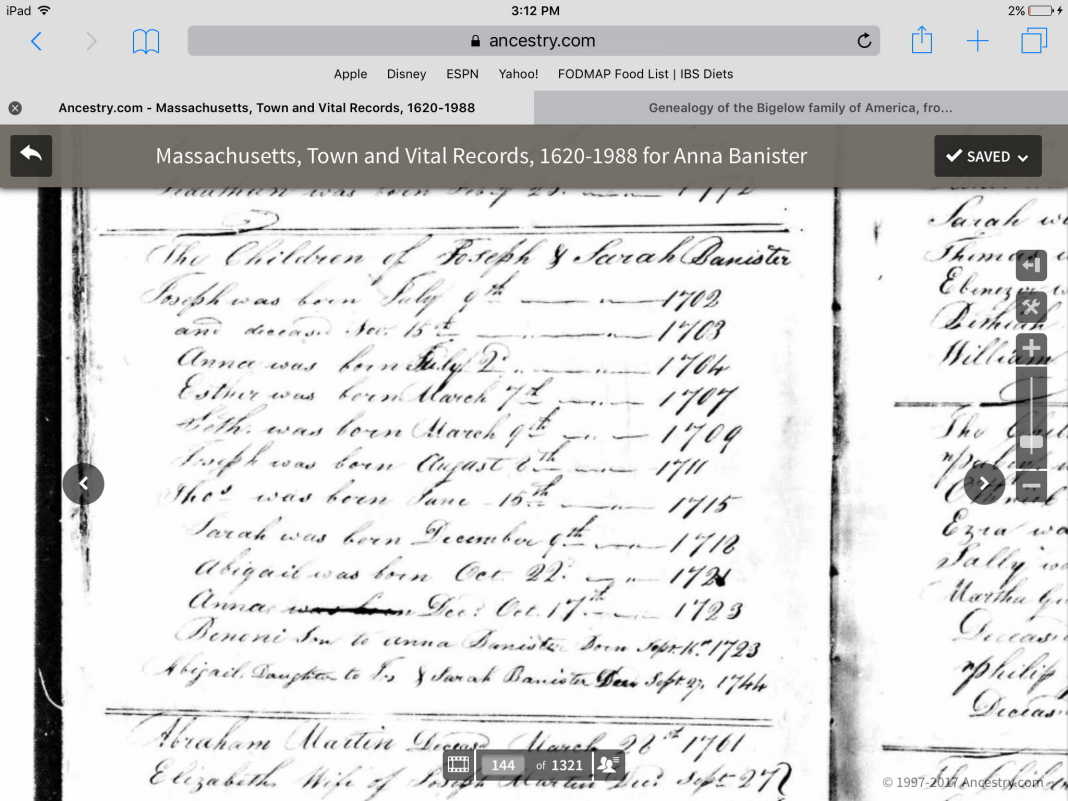 iPad 3:12 PM 2%
ancestry.com
Apple Disney ESPN Yahoo! FODMAP Food List | IBS Diets
Ancestry.com - Massachusetts, Town and Vital Records, 1620-1988 Genealogy of the Bigelow family of America, fro...
Massachusetts, Town and Vital Records, 1620-1988 for Anna Banister SAVED
was born 1772
The Children of Joseph & Sarah Banister
Joseph was born July 9th 1702
and deceasd Nov. 15th 1703
Anna was born July 2d 1704
Esther was born March 7th 1707
Seth was born March 9th 1709
Joseph was born August 8th 1711
Thos was born June 15th 1715
Sarah was born December 9th 1718
Abigail was born Oct 22d 1721
Anna Decd Oct. 17th 1723
Benoni Son to anna Banister Born Sept. 1723
Abigail Daughter to Jos & Sarah Banister Decd Sept 27, 1744
Abraham Martin Deceasd March 28th 1761
Elizabeth Wife of Joseph Martin Decd Sept 27
Sarah
Thomas
Ebenezer
William
The
Ezra
Sally
Martha
Deceas
philip
Deceas
144 of 1321
© 1997-2017 Ancestry.com